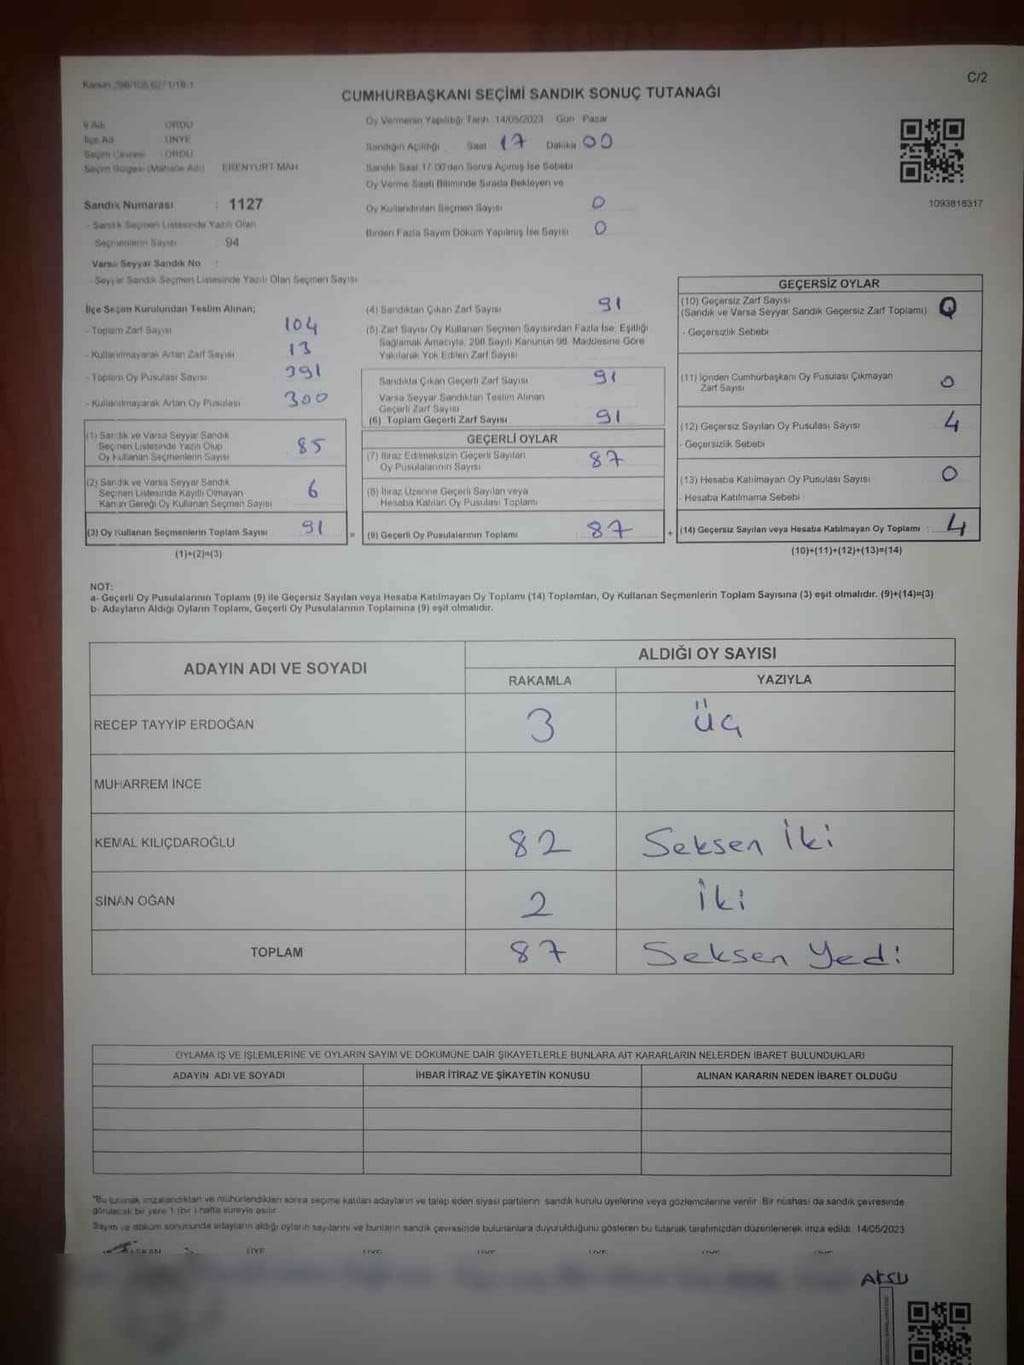 C/2
CUMHURBAŞKANI SEÇİMİ SANDIK SONUÇ TUTANAĞI
İl Adı : ORDU
İlçe Adı : ÜNYE
Seçim Çevresi : ORDU
Seçim Bölgesi (Mahalle Adı) : ERENYURT MAH
Sandık Numarası : 1127
- Sandık Seçmen Listesinde Yazılı Olan
Seçmenlerin Sayısı 94
Varsa Seyyar Sandık No :
- Seyyar Sandık Seçmen Listesinde Yazılı Olan Seçmen Sayısı
Oy Vermenin Yapıldığı Tarih 14/05/2023 Gün Pazar
Sandığın Açıldığı Saat 17 Dakika 00
Sandık Saat 17:00'den Sonra Açılmış İse Sebebi
Oy Verme Saati Bitiminde Sırada Bekleyen ve
Oy Kullandırılan Seçmen Sayısı 0
Birden Fazla Sayım Döküm Yapılmış İse Sayısı 0
1093818317
İlçe Seçim Kurulundan Teslim Alınan;
- Toplam Zarf Sayısı 104
- Kullanılmayarak Artan Zarf Sayısı 13
- Toplam Oy Pusulası Sayısı 391
- Kullanılmayarak Artan Oy Pusulası 300
(1) Sandık ve Varsa Seyyar Sandık
Seçmen Listesinde Yazılı Olup
Oy Kullanan Seçmenlerin Sayısı 85
(2) Sandık ve Varsa Seyyar Sandık
Seçmen Listesinde Kayıtlı Olmayan
Kanun Gereği Oy Kullanan Seçmen Sayısı 6
(3) Oy Kullanan Seçmenlerin Toplam Sayısı 91
(1)+(2)=(3)
(4) Sandıktan Çıkan Zarf Sayısı 91
(5) Zarf Sayısı Oy Kullanan Seçmen Sayısından Fazla İse, Eşitliği
Sağlamak Amacıyla, 298 Sayılı Kanunun 98. Maddesine Göre
Yakılarak Yok Edilen Zarf Sayısı
Sandıkta Çıkan Geçerli Zarf Sayısı 91
Varsa Seyyar Sandıktan Teslim Alınan
Geçerli Zarf Sayısı
(6) Toplam Geçerli Zarf Sayısı 91
GEÇERLİ OYLAR
(7) İtiraz Edilmeksizin Geçerli Sayılan
Oy Pusulalarının Sayısı 87
(8) İtiraz Üzerine Geçerli Sayılan veya
Hesaba Katılan Oy Pusulası Toplamı
= (9) Geçerli Oy Pusulalarının Toplamı 87
GEÇERSİZ OYLAR
(10) Geçersiz Zarf Sayısı
(Sandık ve Varsa Seyyar Sandık Geçersiz Zarf Toplamı) 0
- Geçersizlik Sebebi
(11) İçinden Cumhurbaşkanı Oy Pusulası Çıkmayan
Zarf Sayısı 0
(12) Geçersiz Sayılan Oy Pusulası Sayısı 4
- Geçersizlik Sebebi
(13) Hesaba Katılmayan Oy Pusulası Sayısı 0
- Hesaba Katılmama Sebebi
+ (14) Geçersiz Sayılan veya Hesaba Katılmayan Oy Toplamı 4
(10)+(11)+(12)+(13)=(14)
NOT:
a- Geçerli Oy Pusulalarının Toplamı (9) ile Geçersiz Sayılan veya Hesaba Katılmayan Oy Toplamı (14) Toplamları, Oy Kullanan Seçmenlerin Toplam Sayısına (3) eşit olmalıdır. (9)+(14)=(3)
b- Adayların Aldığı Oyların Toplamı, Geçerli Oy Pusulalarının Toplamına (9) eşit olmalıdır.
ADAYIN ADI VE SOYADI ALDIĞI OY SAYISI
RAKAMLA YAZIYLA
RECEP TAYYİP ERDOĞAN 3 üç
MUHARREM İNCE
KEMAL KILIÇDAROĞLU 82 Seksen İki
SİNAN OĞAN 2 İki
TOPLAM 87 Seksen Yedi
OYLAMA İŞ VE İŞLEMLERİNE VE OYLARIN SAYIM VE DÖKÜMÜNE DAİR ŞİKAYETLERLE BUNLARA AİT KARARLARIN NELERDEN İBARET BULUNDUKLARI
ADAYIN ADI VE SOYADI İHBAR İTİRAZ VE ŞİKAYETİN KONUSU ALINAN KARARIN NEDEN İBARET OLDUĞU
*Bu tutanak imzalandıktan ve mühürlendikten sonra seçime katılan adayların ve talep eden siyasi partilerin sandık kurulu üyelerine veya gözlemcilerine verilir. Bir nüshası da sandık çevresinde
görülecek bir yere 1 (bir) hafta süreyle asılır.
Sayım ve döküm sonucunda adayların aldığı oyların sayılarını ve bunların sandık çevresinde bulunanlara duyurulduğunu gösteren bu tutanak tarafımızdan düzenlenerek imza edildi. 14/05/2023
BAŞKAN ÜYE ÜYE ÜYE ÜYE ÜYE ÜYE
AKSU